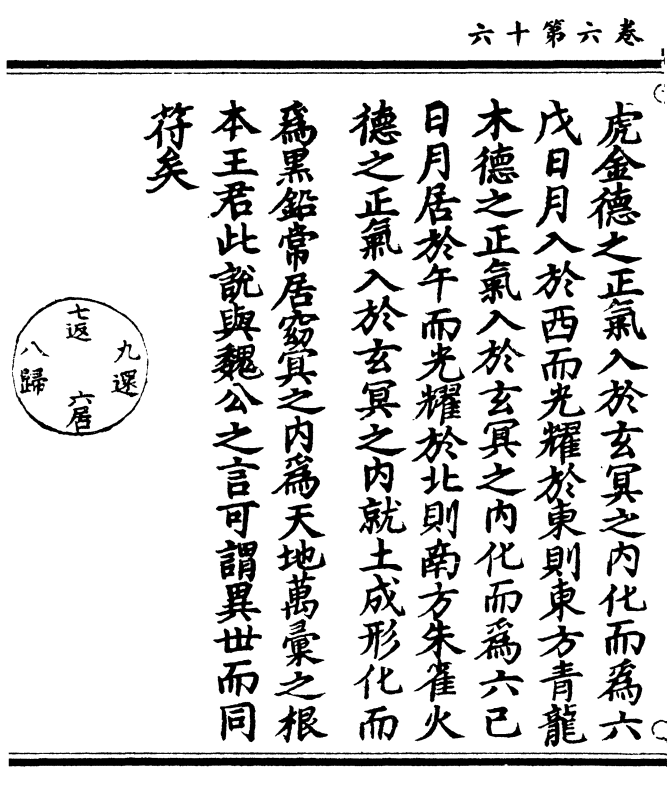 卷六第十六
虎金德之正氣入於玄冥之內化而為六
戊日月入於西而光耀於東則東方青龍
木德之正氣入於玄冥之內化而為六己
日月居於午而光耀於北則南方朱雀火
德之正氣入於玄冥之內就土成形化而
為黑鉛常居窈冥之內為天地萬彙之根
本王君此說與魏公之言可謂異世而同
符矣
九還
七返
六居
八歸